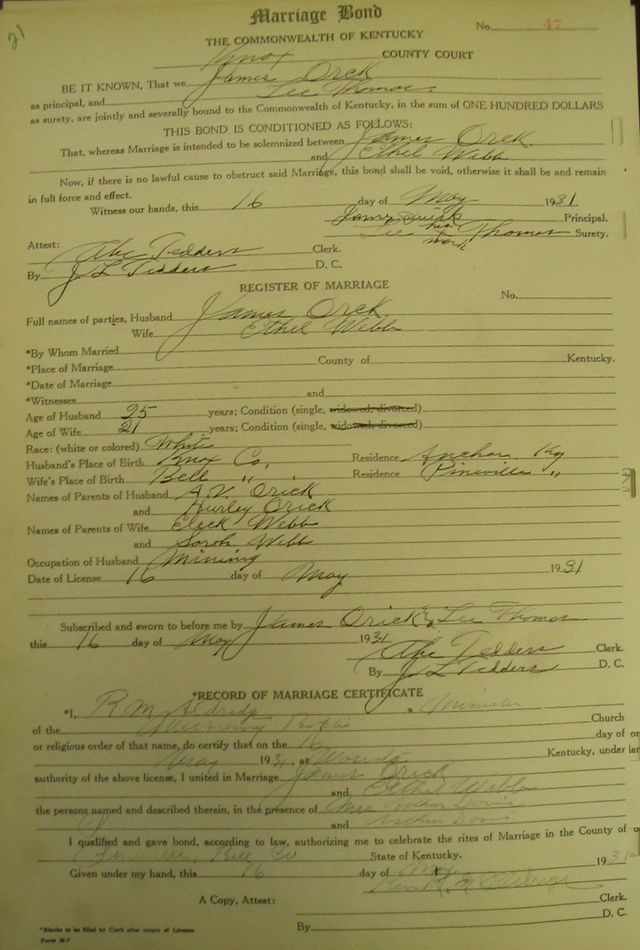 21
Marriage Bond
No. 47
THE COMMONWEALTH OF KENTUCKY
Knox COUNTY COURT
BE IT KNOWN, That we James Orick
as principal, and Lee Thomas
as surety, are jointly and severally bound to the Commonwealth of Kentucky, in the sum of ONE HUNDRED DOLLARS
THIS BOND IS CONDITIONED AS FOLLOWS:
That, whereas Marriage is intended to be solemnized between James Orick
and Ethel Webb
Now, if there is no lawful cause to obstruct said Marriage, this bond shall be void, otherwise it shall be and remain
in full force and effect.
Witness our hands, this 16 day of May 1931
James Principal.
Lee his mark Thomas Surety.
Attest: Abe Tedders Clerk.
By J L Tedders D. C.
REGISTER OF MARRIAGE
No.
Full names of parties, Husband James Orick
Wife Ethel Webb
*By Whom Married
*Place of Marriage County of Kentucky.
*Date of Marriage
*Witnesses and
Age of Husband 25 years; Condition (single, widowed, divorced)
Age of Wife 21 years; Condition (single, widowed, divorced)
Race: (white or colored) White
Husband's Place of Birth Knox Co, Residence Anchor Ky
Wife's Place of Birth Bell " Residence Pineville "
Names of Parents of Husband A.V. Orick
and Hurley Orick
Names of Parents of Wife Eleck Webb
and Sarah Webb
Occupation of Husband Mining
Date of License 16 day of May 1931
Subscribed and sworn to before me by James Orick & Lee Thomas
this 16 day of May 1931
Abe Tedders Clerk.
By J L Tedders D. C.
*RECORD OF MARRIAGE CERTIFICATE
*I, R M a Minister
of the Missionary Baptis Church
or religious order of that name, do certify that on the 16 day of
May 1931 at Kentucky, under
authority of the above license, I united in Marriage James Orick
and Ethel Webb
the persons named and described therein, in the presence of Mrs
and
I qualified and gave bond, according to law, authorizing me to celebrate the rites of Marriage in the County of
Pineville, Bell Co State of Kentucky.
Given under my hand, this 16 day of May 193
Rev R. M
A Copy, Attest: Clerk.
By D. C.
*Blanks to be filled by Clerk after return of License.
Form M-7